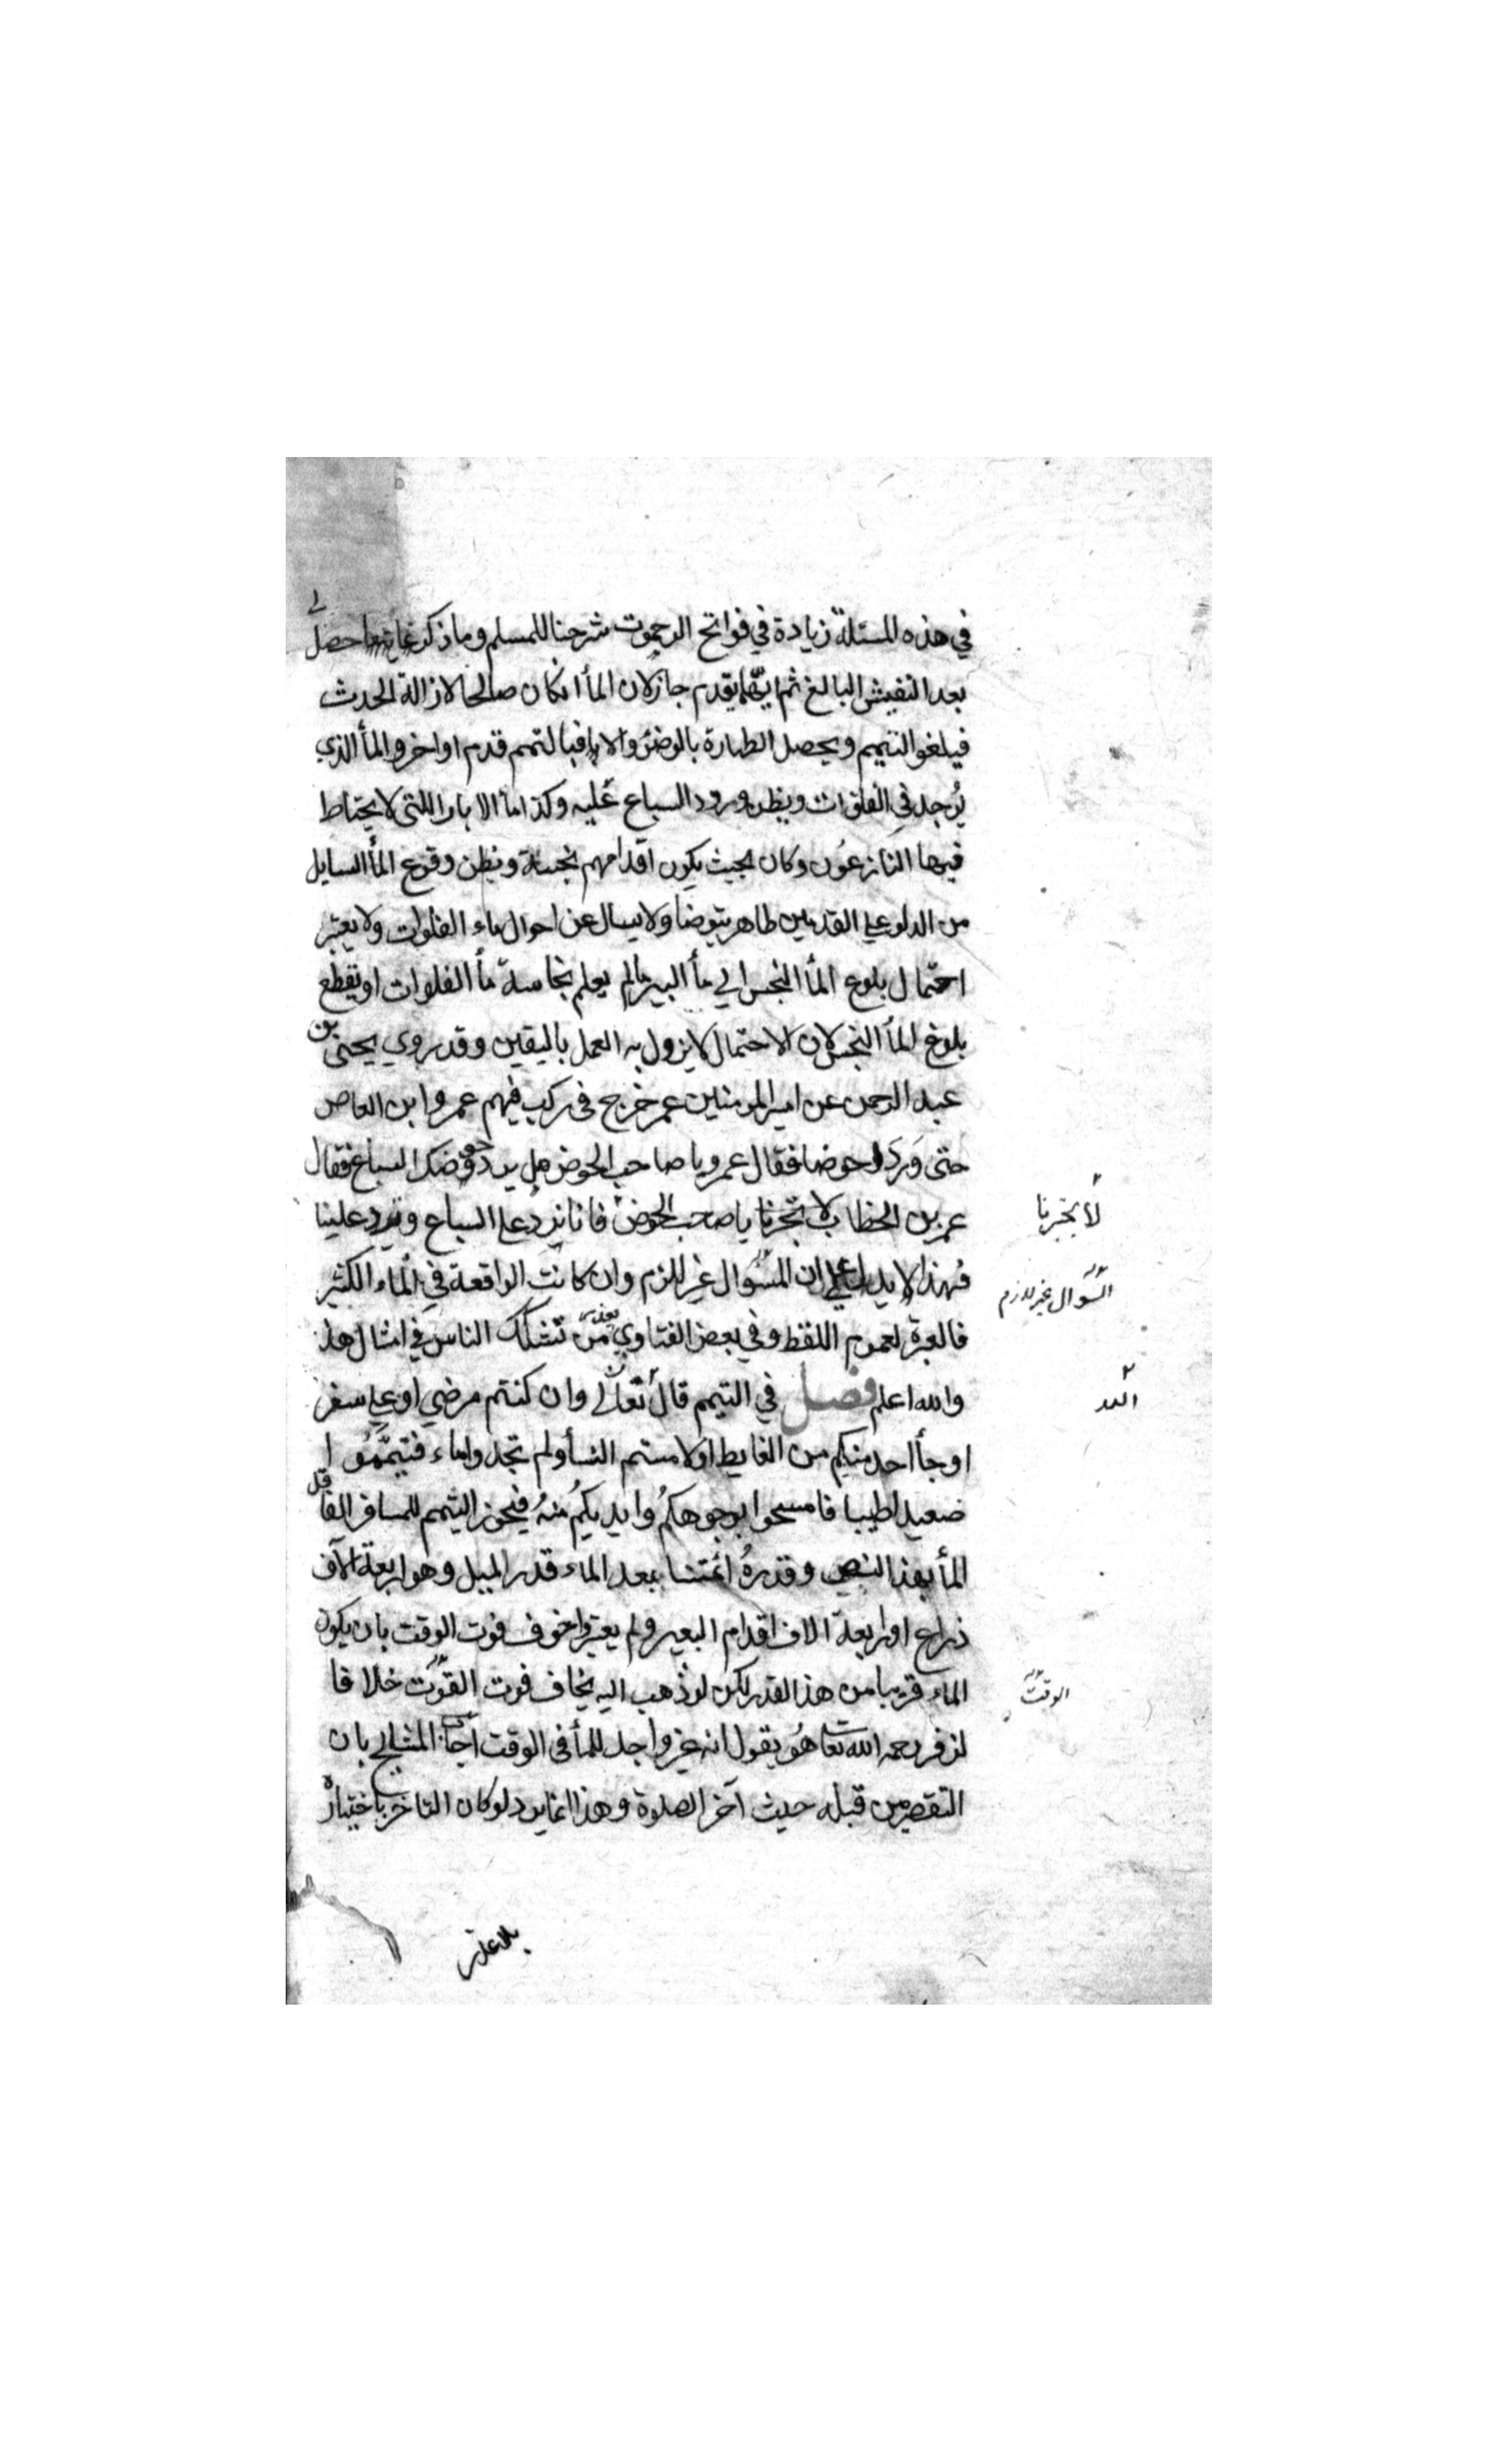 في هذه المسئلة زيادة في فواتح الرحموت شرحنا للمسلم وما ذكر حصل لي
بعد التفيش البالغ ثم ايّهما يقدم جاز لان المأ انكان صالحا لازالة الحدث
فيلغو التيمم ويحصل الطهارة بالوضؤ والا فبالتمم قدم او اخر والمأ الذي
يُوجد في الفلوات ويظن ورود السباع عليه وكذا ما الابار اللتى لا يحتاط
فيها النازعُون وكان بحيث يكون اقدامهم نجسة ويظن وقوع المأ السايل
من الدلو علي القدمين طاهر يتوضا ولا يسال عن احوال ماء الفلوات ولا يعتبر
احتمال بلوغ المأ النجس الي مأ البير مالم يعلم نجاسة مأ الفلوات او يقطع
بلوغ المأ النجس لان الاحتمال لا يزول به العمل باليقين وقد روي يحيى بن
عبد الرحمن عن امير المومنين عمر خرج في ركب فيهم عمرو ابن العاص
حتى وَرَدوا حوضا فقال عمرو يا صاحب الحوض هل يرد حوضك السباع فقال
عمر بن الخطاب لا تخبرنا يا صاحب الحوض فانا نردُ علي السباع وترد علينا
لا تخبرنا
فهذا لا يدل علي ان السُوال غير للزم وان كانت الواقعة في الماء الكثير
السوال غير لازم
فالعبرة لعموم اللفظ وفي بعض الفتاوي من تشكك الناس في امثال هذا
والله اعلم فصل في التيمم قال تعالي وان كنتم مرضي او علي سفر
الله
او جأ احد منكم من الغايط او لامستم النسأ ولم تجدوا ماء فتيمّمُوا
صعيدا طيبا فامسحوا بوجوهكُم وايديكُم منهُ فيجوز التيمم للمسافر الفاقد
المأ بهذا النص وقدرهُ ائمتنا ببعد الماء قدر الميل وهو اربعة الآف
ذراع او اربعة الاف اقدام البعير ولم يعتبروا خوف فوت الوقت بان يكون
الماء قريبا من هذا القدر لكن لو ذهب اليه يخاف فوت القوت خلافا
الوقت
لزفر رحمه الله تعا هُو يقول انه غير واجد للمأ في الوقت اجاب المشايخ بان
التقصير من قبله حيث آخر الصلوة وهذا انما يرد لو كان التاخر باختياره
بلا عذر